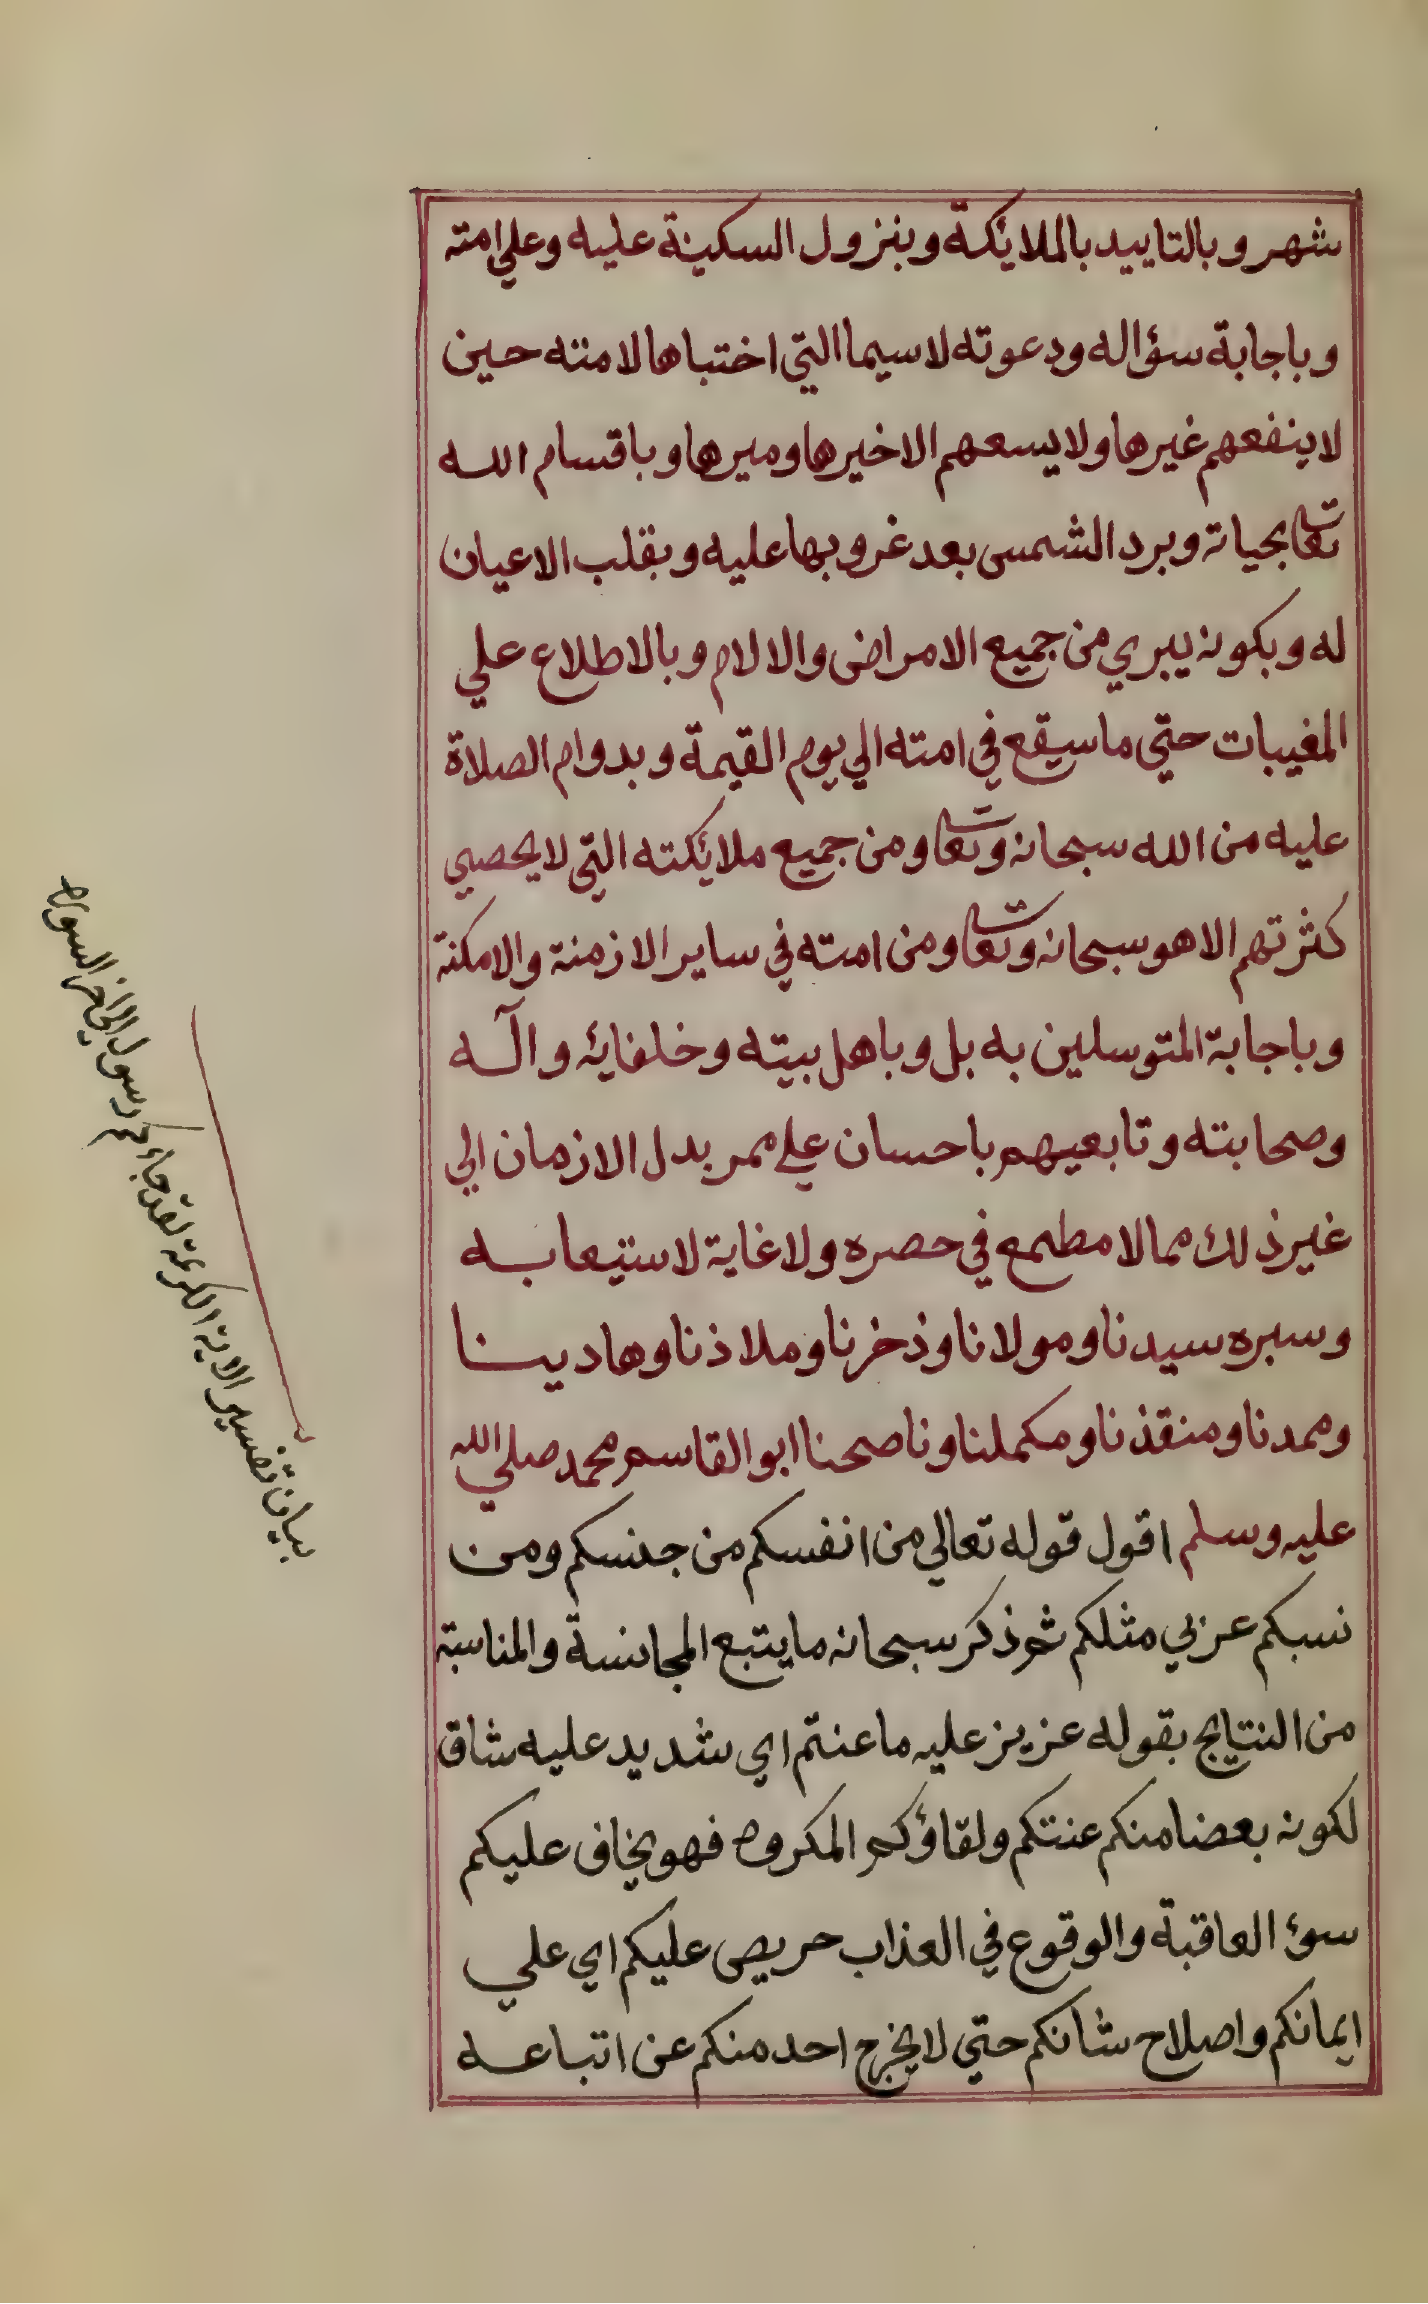 شهر وبالتاييد بالملائكة وبنزول السكينة عليه وعلي امته
وباجابة سؤاله ودعوته لاسيما التي اختباها لامته حين
لاينفعهم غيرها ولا يسعهم الا خيرها وميرها وباقسام الله
تعا بحياته وبرد الشمس بعد غروبها عليه وبقلب الاعيان
له وبكونه يبري من جميع الامراض والالام وبالاطلاع علي
المغيبات حتي ما سيقع في امته الي يوم القيمة وبدوام الصلاة
عليه من الله سبحانه وتعا ومن جميع ملائكته التي لا يحصي
كثرتهم الا هو سبحانه وتعا ومن امته في ساير الازمنة والامكنة
وباجابة المتوسلين به بل وباهل بيته وخلفائه وآله
وصحابته وتابعيهم باحسان علي ممر بدل الازمان الي
غير ذلك مما لا مطمع في حصره ولا غاية لاستيعابه
وسبره سيدنا ومولانا وذخرنا وملاذنا وهادينا
وممدنا ومنقذنا ومكملنا وناصحنا ابو القاسم محمد صلي الله
عليه وسلم اقول قوله تعالي من انفسكم من جنسكم ومن
نسبكم عربي مثلكم ثم ذكر سبحانه ما يتبع المجانسة والمناسبة
من النتايج بقوله عزيز عليه ما عنتم اي شديد عليه شاق
لكونه بعضا منكم عنتكم ولقاؤكم المكروه فهو يخاف عليكم
سوء العاقبة والوقوع في العذاب حريص عليكم اي علي
ايمانكم واصلاح شانكم حتي لا يخرج احد منكم عن اتباعه
بيان تفسير الاية الكريمة لقد جاءكم رسول الي اخر السوره